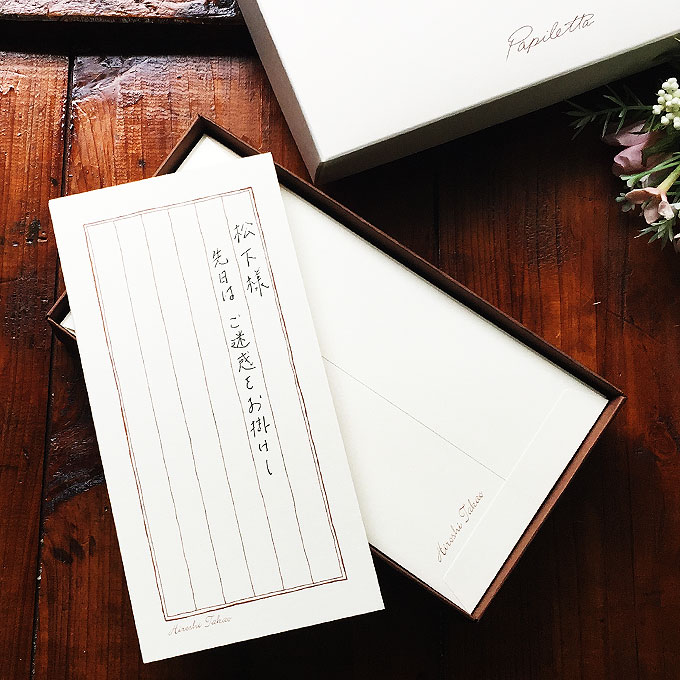 Papiletta
松下様
先日は ご迷惑をお掛けし
Hiroshi Takao
Hiroshi Takao